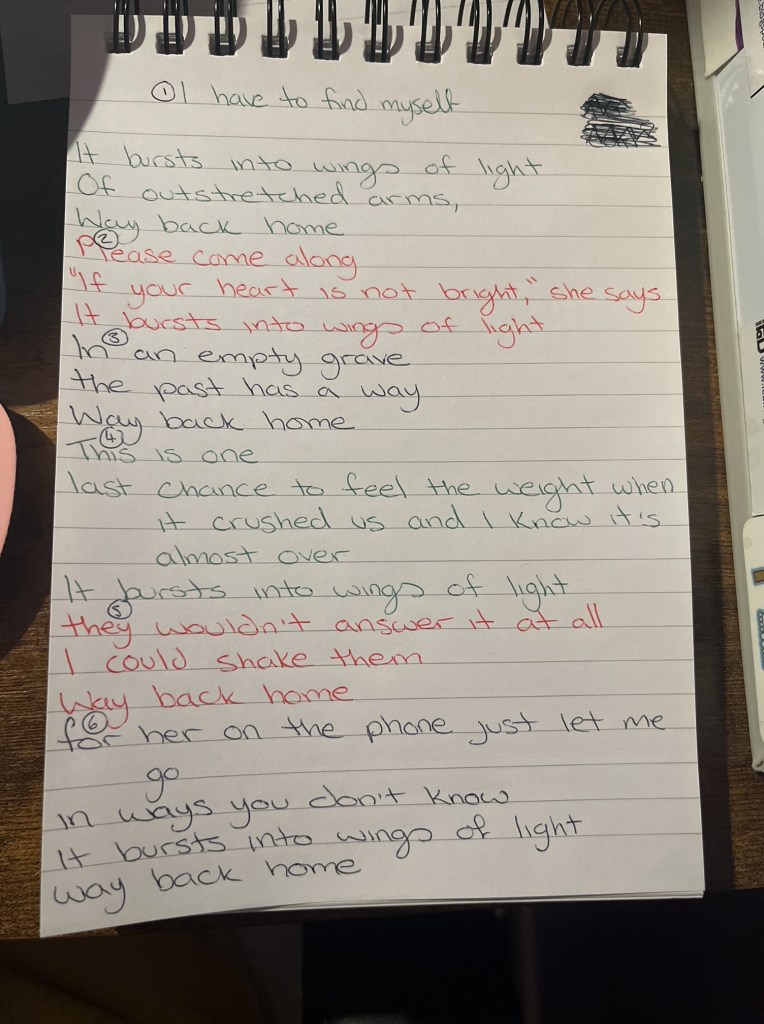 ① I have to find myself
It bursts into wings of light
Of outstretched arms,
Way back home
②
Please come along
"If your heart is not bright," she says
It bursts into wings of light
③
In an empty grave
the past has a way
Way back home
④
This is one
last chance to feel the weight when
it crushed us and I know it's
almost over
It bursts into wings of light
⑤
they wouldn't answer it at all
I could shake them
Way back home
⑥
for her on the phone just let me
go
in ways you don't know
It bursts into wings of light
way back home